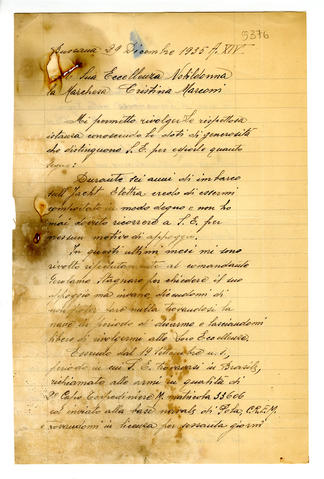 5376
29 Dicembre 1935 A. XIV.
Sua Eccellenza Nobildonna
la Marchesa Cristina Marconi
Mi permetto rivolgerLe rispettosa
istanza conoscendo le doti di generosità
che distinguono S.E. per esporle quanto
segue:
Durante sei anni di imbarco
sull'Yacht Elettra credo di essermi
comportato in modo degno e non ho
mai dovuto ricorrere a S.E. per
nessun motivo di appoggio.
In questi ultimi mesi mi sono
rivolto al comandante
Gerolamo Stagnaro per chiedere il suo
appoggio ma invano, dicendomi di
non poter nulla trovandosi la
nave in periodo di disarmo e lasciandomi
libero di rivolgermi alle Loro Eccellenze.
Essendo dal 19 Settembre u.s.,
periodo in cui S.E. trovavasi in Brasile,
richiamato alle armi in qualità di
2° Capo Torpediniere M. matricola 33606
ed inviato alla base navale di Pola,
e trovandomi in licenza per sessanta giorni